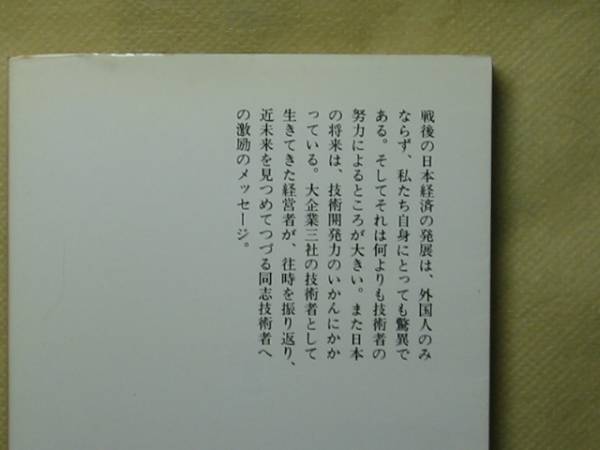 戦後の日本経済の発展は、外国人のみ
ならず、私たち自身にとっても驚異で
ある。そしてそれは何よりも技術者の
努力によるところが大きい。また日本
の将来は、技術開発力のいかんにかか
っている。大企業三社の技術者として
生きてきた経営者が、往時を振り返り、
近未来を見つめてつづる同志技術者へ
の激励のメッセージ。